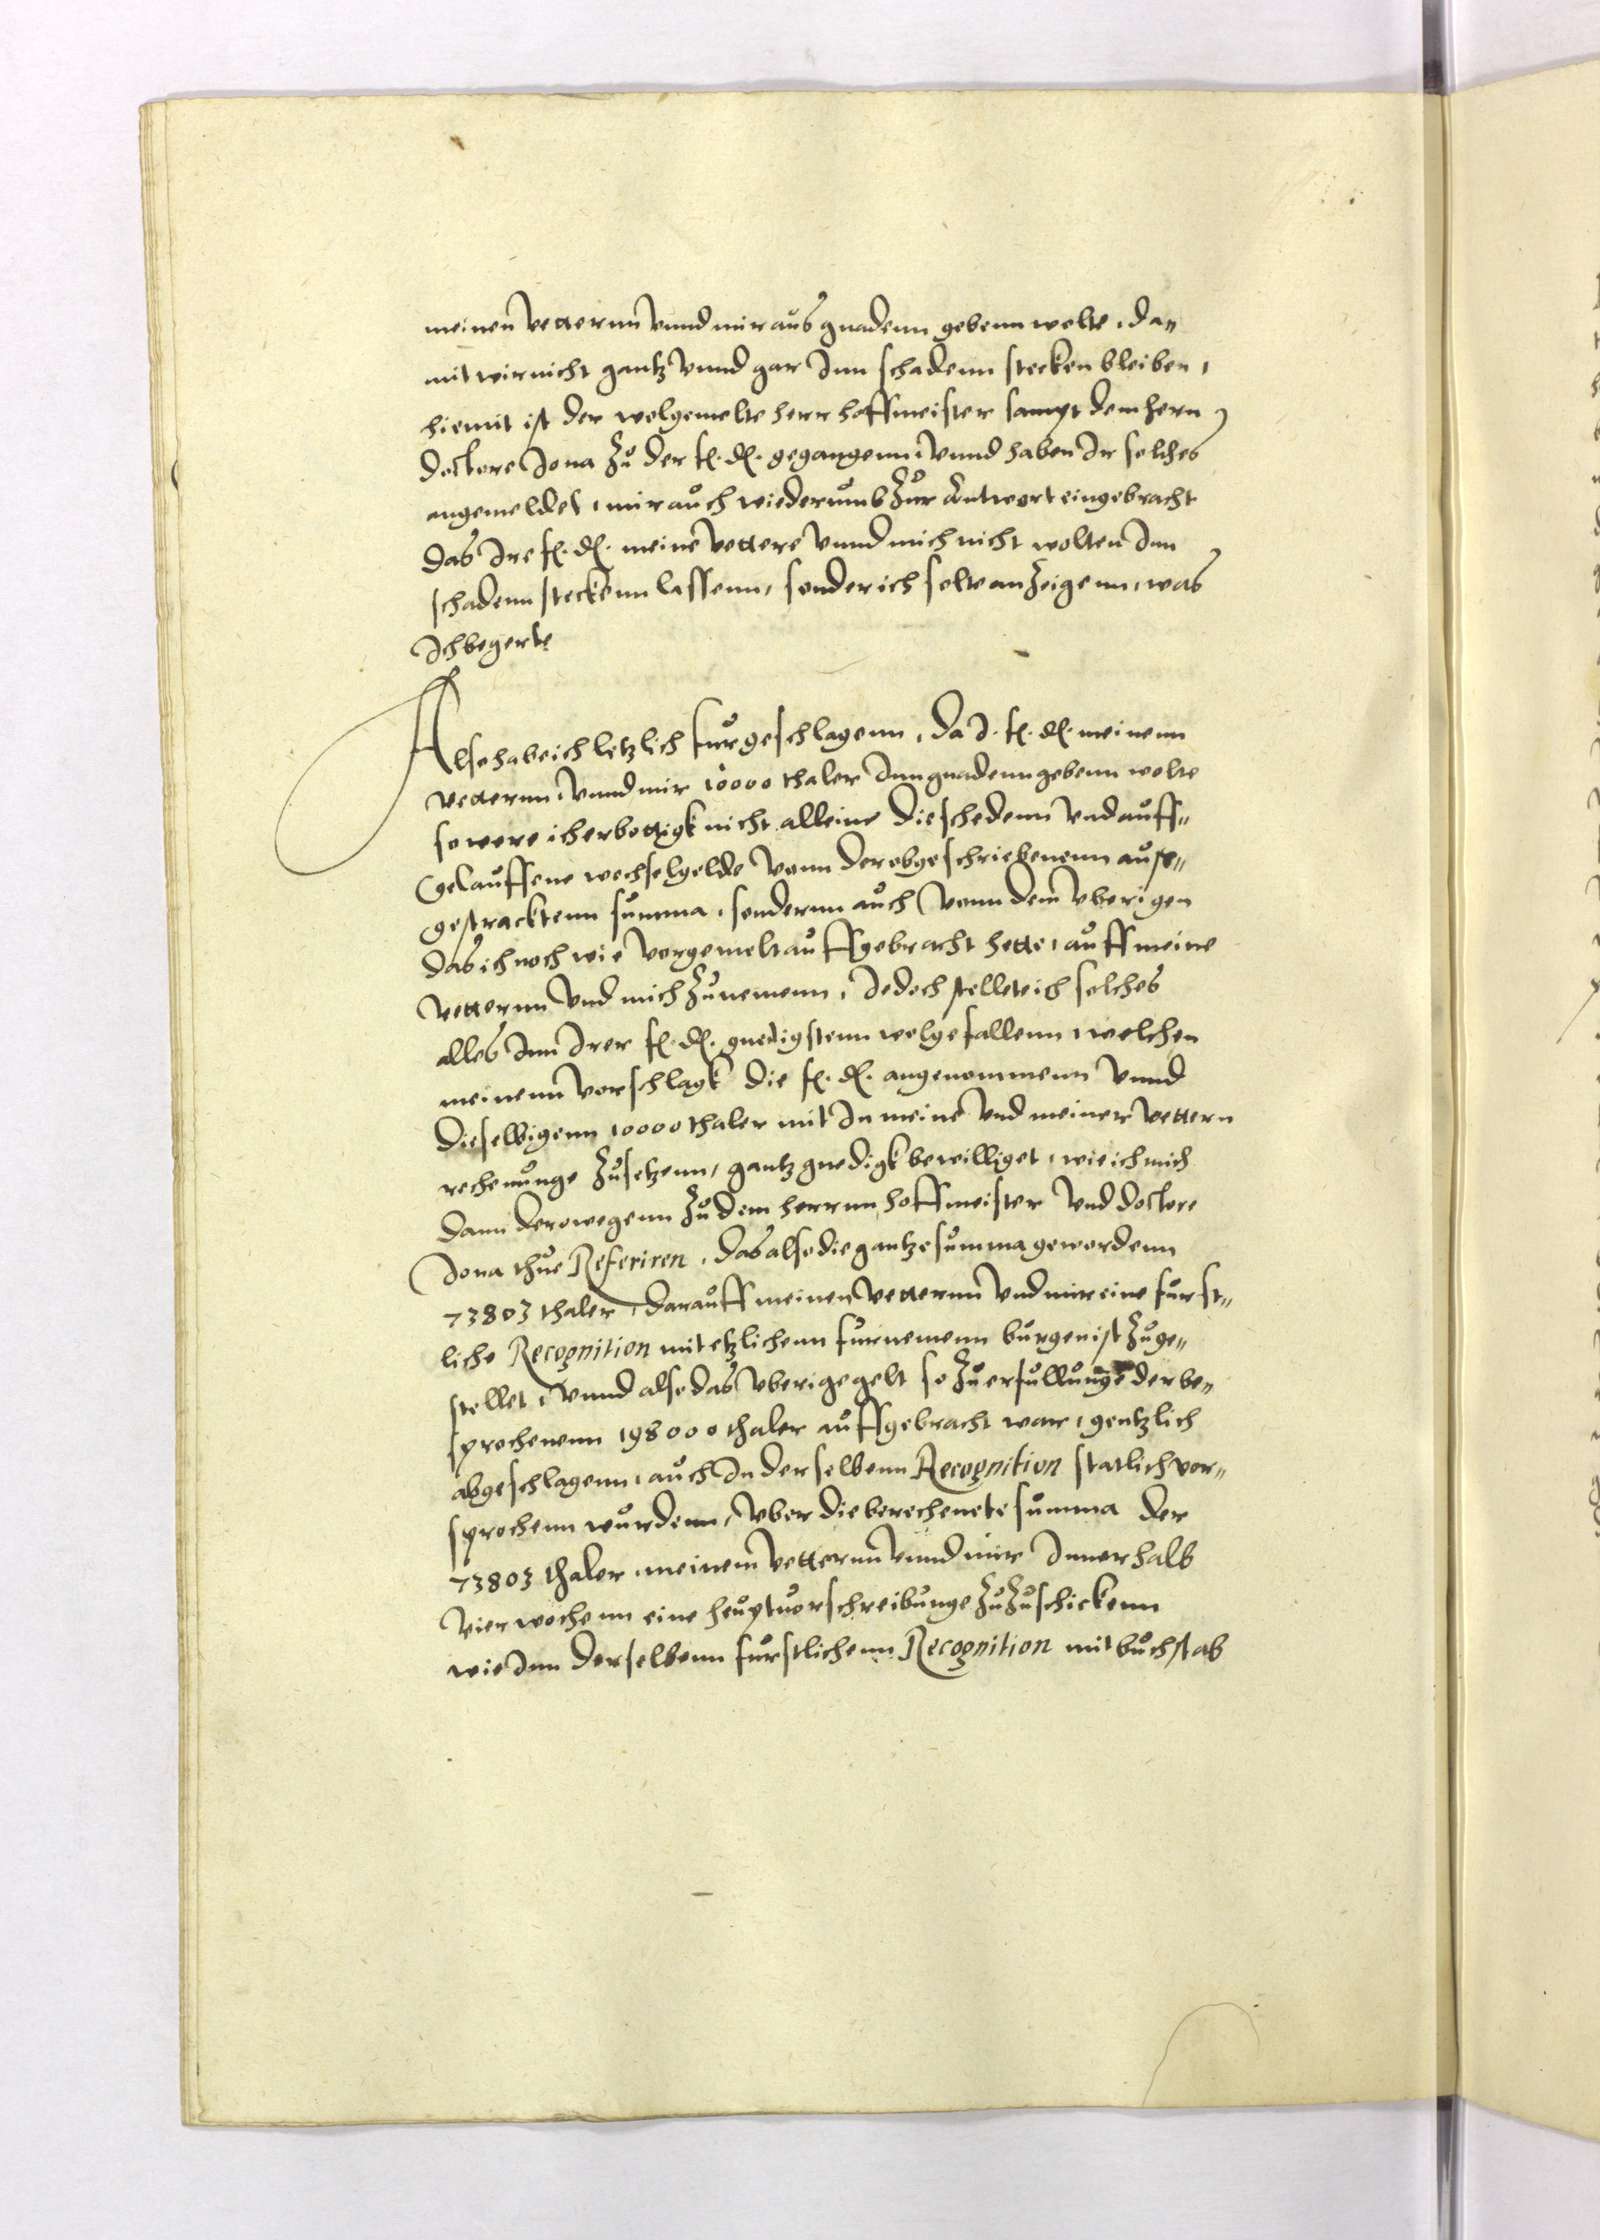 meinen vetternn vnnd mir aus gnadenn gebenn wolte, da„
mit wir nicht gantz vnnd gar Inn schadenn stecken bleiben,
hiemit ist der wolgemelte herr hoffmeister sampt dem hern
doctore Jona zu der f. d. gegangenn, vnnd haben Ir solches
angemeldet, mir auch wiederumb zur Antwort eingebracht
das Ire f. d. meine vettere vnnd mich nicht wolten Inn
schadenn steckenn lassenn, sonder ich solte anzeigenn, was
Ich begerte
Also habe ich letzlich furgeschlagenn, da I. f. d. meinenn
vetternn, vnnd mir 10000 thaler Inn gnadenn gebenn wolte
so were ich erbottigk nicht alleine die schedenn vnd auff„
gelauffene wechselgelde vonn der obgeschriebenenn ausse„
gestracktenn summa, sondernn auch vonn dem vberigen
das ich noch wie vorgemelt auffgebracht hette, auff meine
vetternn vnd mich zunemenn, Jedoch stellete ich solches
alles Inn Irer f. d. gnedigstenn wolgefallenn, welchen
meinenn vorschlagk die f. d. angenommenn vnnd
dieselbigenn 10000 thaler mit In meine vnd meiner vettern
rechenunge zusetzenn, gantz gnedigk bewilliget, wie ich mich
dann derowegenn zu dem herrnn hoffmeister vnd doctore
Jona thue Referiren, das also die gantze summa gewordenn
73803 thaler, darauff meinen vetternn vnd mir eine furst„
liche Recognition mit etzlichenn furnemenn burgen ist zuge„
stellet, vnnd also das vberige gelt so zu erfullunge der be„
sprochenenn 198000 thaler auffgebracht war, gentzlich
abgeschlagenn, auch In derselbenn Recognition statlich vor„
sprochenn wurdenn, vber die berechenete summa der
73803 thaler, meinem vetternn vnnd mir Innerhalb
vier wochenn eine heuptuorschreibunge zuzuschickenn
wie Inn derselbenn furstlichenn Recognition mit buchstab